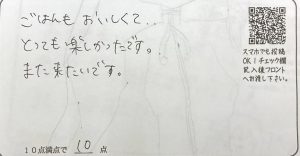 ごはんも おいしくて..
とっても楽しかったです。.
また来たいです。
スマホでも投稿
OK！チェック欄
記入後フロント
へお渡し下さい。
10点満点で 10 点